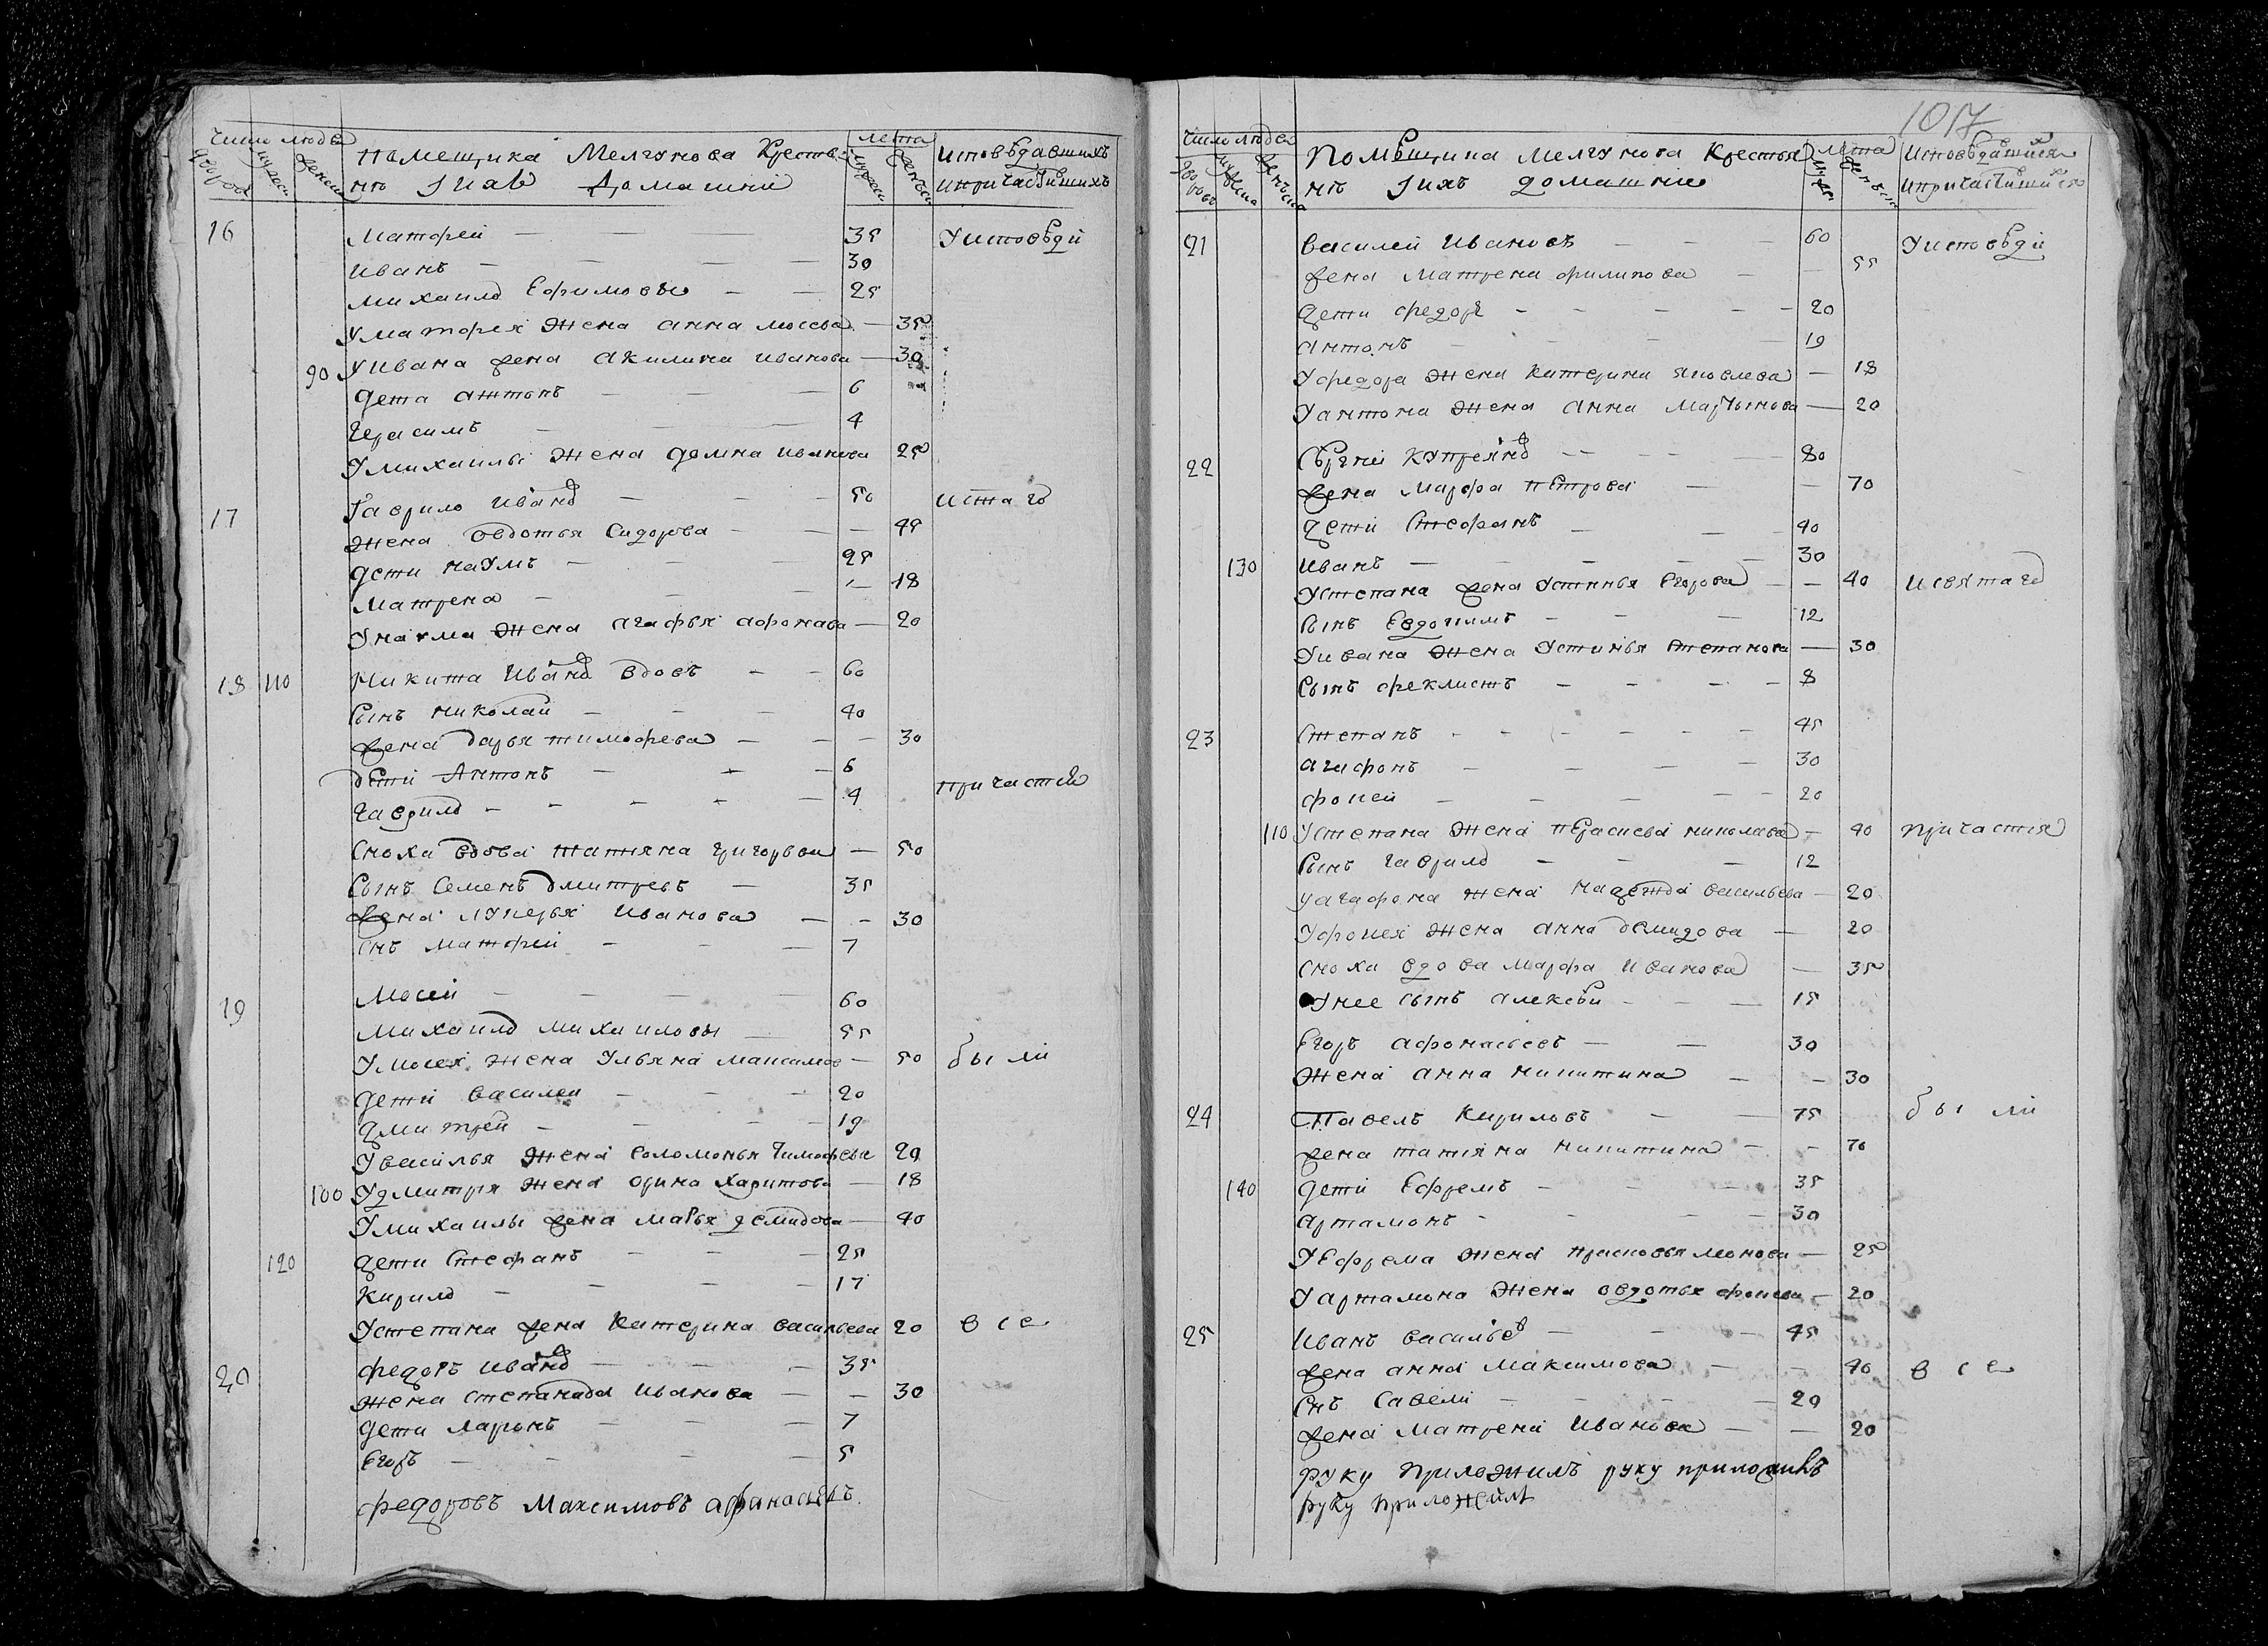 число людей
дворов
мужеск
женск
помещика Мелгунова Крестья
нъ Iихъ Домашнiй
лета
мужеск
женска
исповѣдавшихъ
ипричастившихъ
16 Матфей 35 Уисповѣди
иванъ 30
михаило Ефимовы 25
Уматфея жена анна мосева 35
90 Уивана жена акилина иванова 30
дета антонъ 6
герасимъ 4
Умихаилы жена домна иванова 25
17 Гаврило Иванов 50 истаго
жена овдотья Сидорова 45
дети наумъ 25
матрена 18
Унаума жена агафья афонава 20
18 110 никита Иванов вдовъ 60
сынъ николаи 40
жена дарья тимофеева 30
дети Антонъ 6
гаврило 4 причастiя
сноха вдова татияна григорвва 50
сынъ Семенъ дмитревъ 35
жена лукерья Иванова 30
снъ матфеи 7
19 Мосеи 60
михаило михаиловы 55
Умосея жена Ульяна максимов 50 были
дети василеи 20
дмитреи 19
Увасилья жена соломонья тимофева 20
100 Удмитря жена орина Харитова 18
Умихаилы жена марья демидова 40
120 дети Стефанъ 25
Кирило 17
Устепана жена катерина васильева 20 все
20 федоръ иванов 35
жена степанида иванова 30
дета ларiонъ 7
егоръ 5
федоровъ Максимовъ афанасьевъ
1017
число людей
дворовъ
мужеска
женъска
помѣщика мелгунова крестья
нъ Iихъ домашние
лѣта
мужес
женъск
исповѣдавшихся
ипричастившихся
21 василей ивановъ 60 Уисповѣди
жена матрена филипова 55
дети федоръ 20
антонъ 19
Уфедора жена катерина яковлева 18
Уантона жена анна мартынова 20
22 Сѣргей купреянов 80
жена марфа петрова 70
дети Стефанъ 40
130 иванъ 30
Устепана жена Устинья Егорова 40 исвятаго
сынъ евдокимъ 12
Уивана жена Устинья степанова 30
сынъ феклистъ 8
23 Степанъ 45
агафонъ 30
фокеи 20
110 Устепана жена перасиева николаева 40 причастия
сынъ гаврило 12
Уагафона жена надежда васильева 20
Уфокея жена анна демидова 20
сноха вдова марфа иванова 35
Унее сынъ алексѣи 15
Егоръ афонасьевъ 30
жена анна никитина 30
24 Павелъ Кириловъ 75 были
жена татияна никитина 70
140 дети Ефремъ 35
артамонъ 30
УЕфрема жена прасковья монова 25
Уартамона жена овдотья фокиева 20
25 иванъ васильев 45
жена анна максимова 40 все
снъ савели 20
жена матрена иванова 20
руку приложилъ руку приложилъ
руку приложилъ